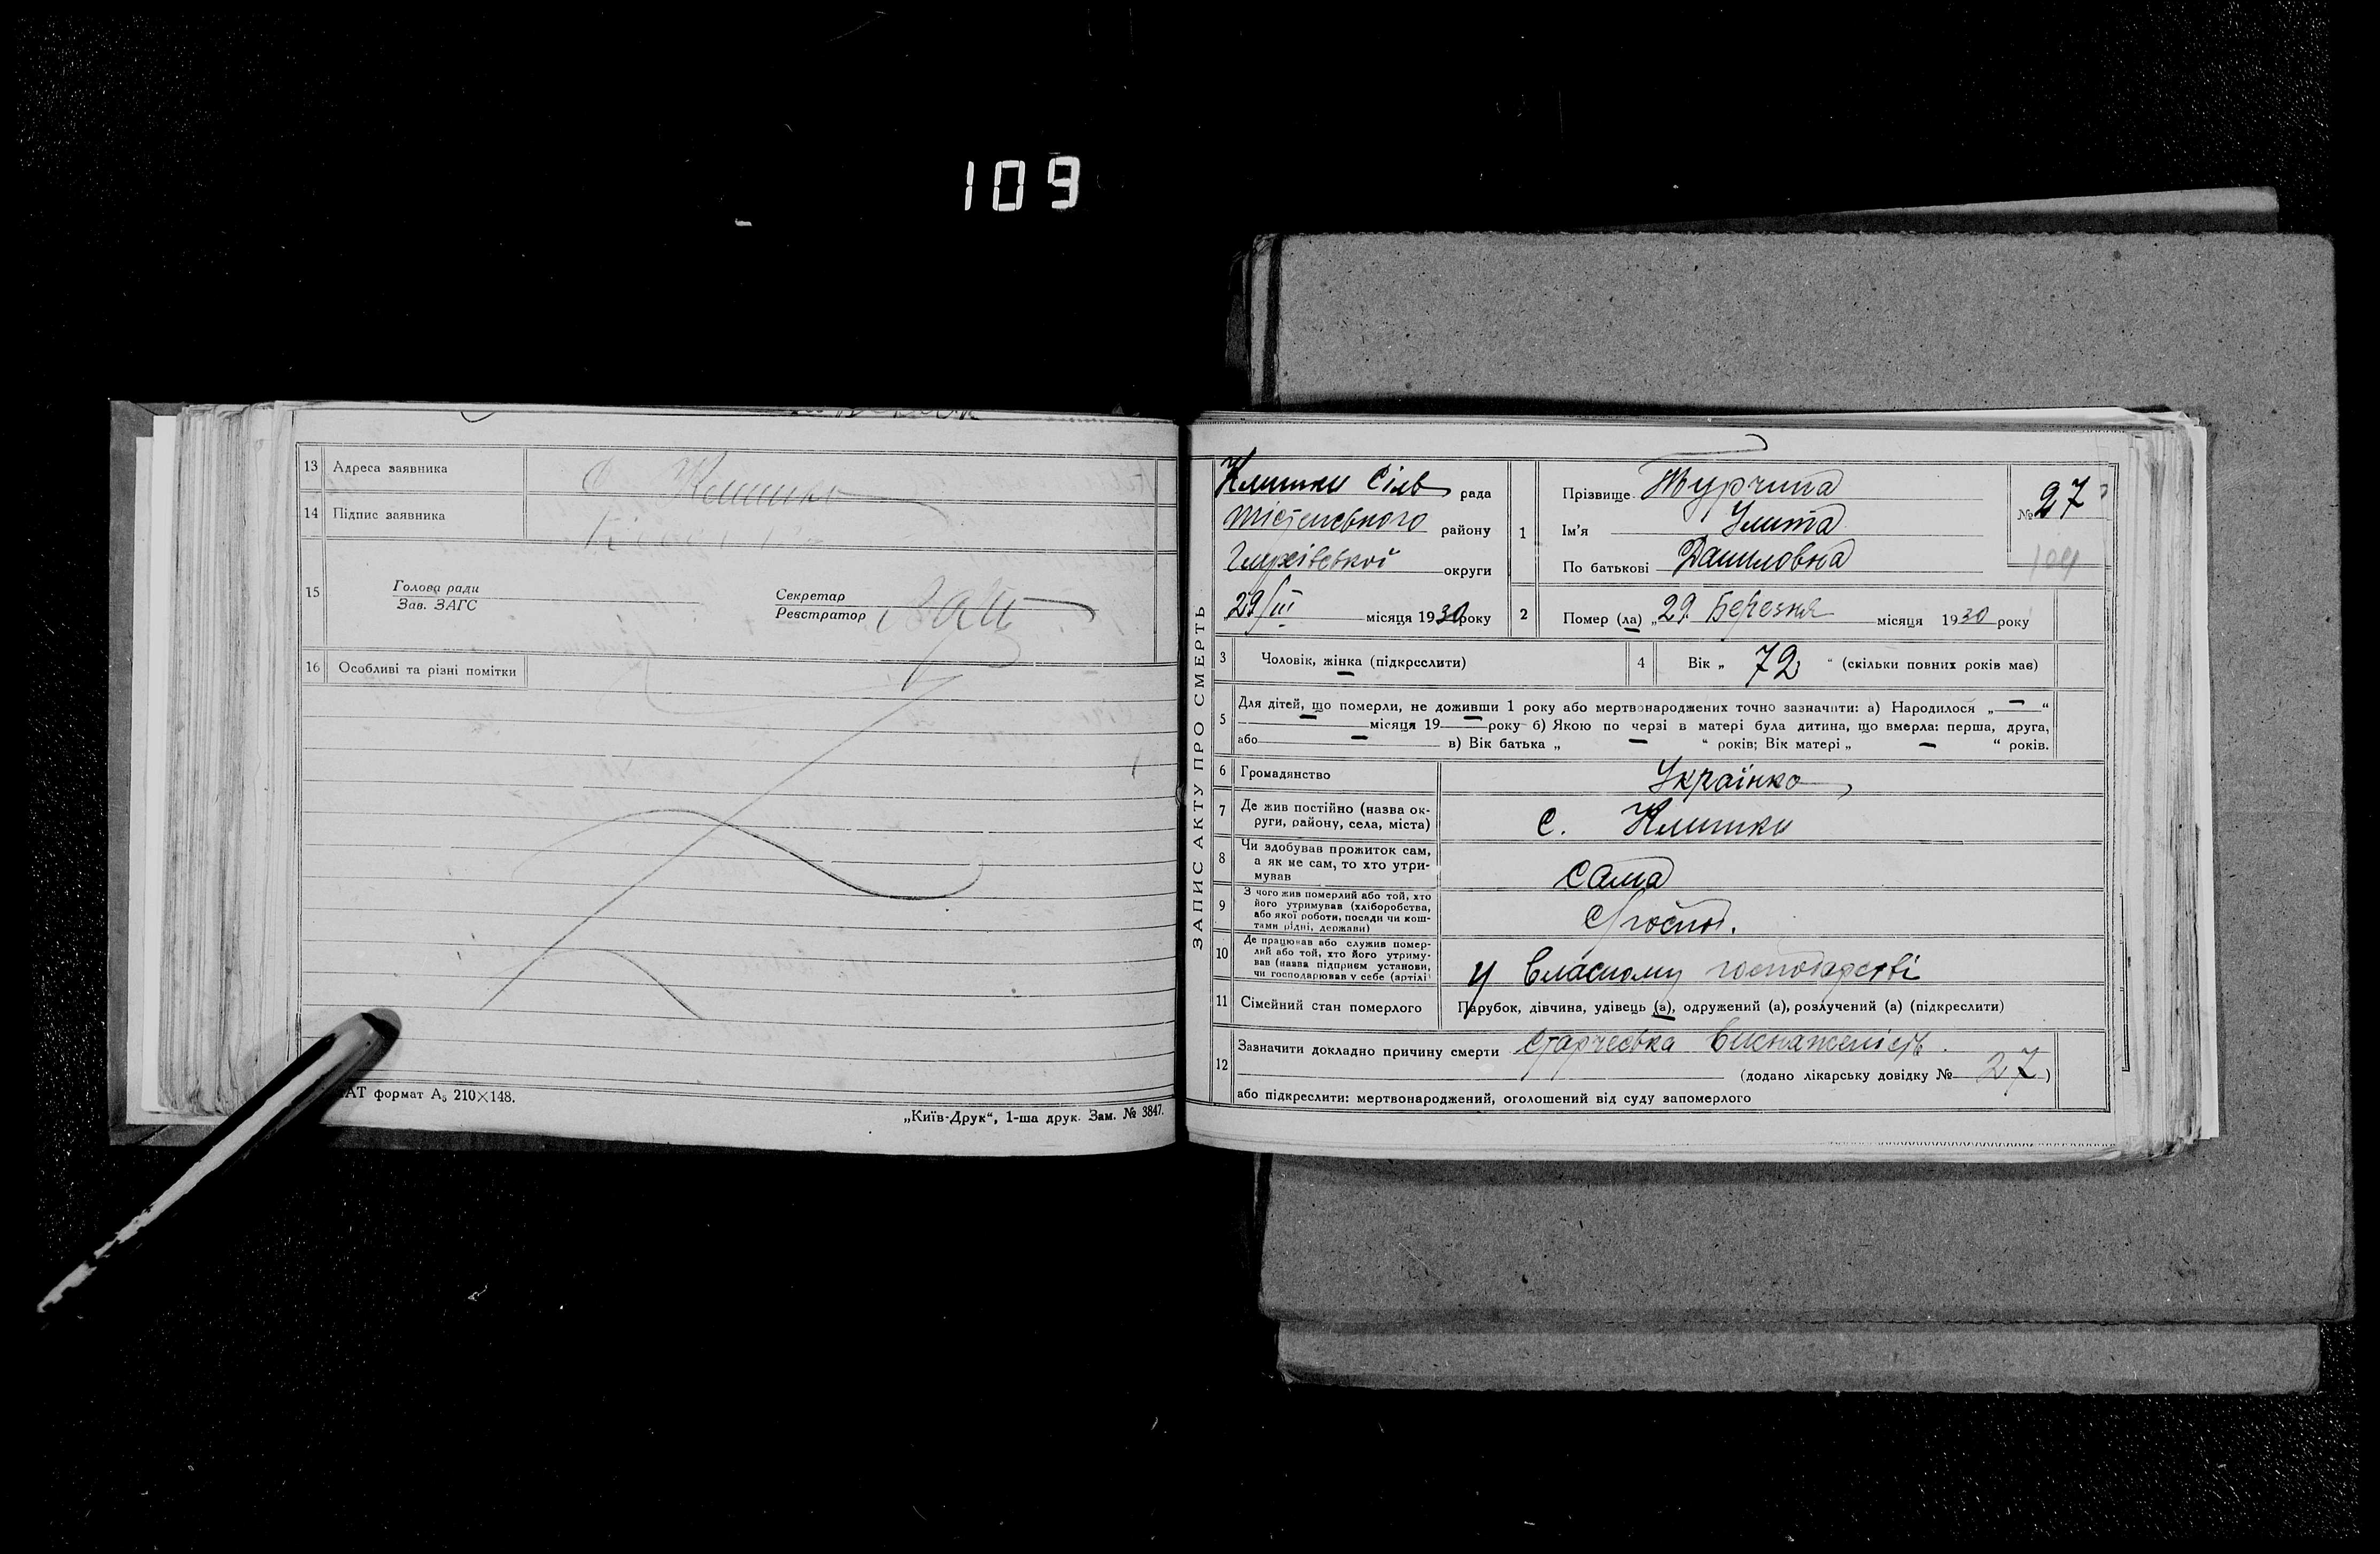 109
13 Адреса заявника
14 Підпис заявника
15 Голова ради
Зав. ЗАГС
Секретар
Реєстратор
16 Особливі та різні помітки
АТ формат А₅ 210×148.
„Київ-Друк“, 1-ша друк. Зам. № 3847.
ЗАПИС АКТУ ПРО СМЕРТЬ
Клишки Сіль рада
району
Глухівської округи
29/III місяця 1930 року
1 Прізвище Турчина
Ім'я Улита
По батькові Даниловна
№ 27
109
2 Помер (ла) „29. Березня місяця 1930 року
3 Чоловік, жінка (підкреслити)
4 Вік „ 72 “ (скільки повних років має)
5 Для дітей, що померли, не доживши 1 року або мертвонароджених точно зазначити: а) Народилося „ — “
— місяця 19 — року б) Якою по черзі в матері була дитина, що вмерла: перша, друга,
або — в) Вік батька „ — “ років; Вік матері „ — “ років.
6 Громадянство Українка
7 Де жив постійно (назва ок-
руги, району, села, міста) с. Клишки
8 Чи здобував прожиток сам,
а як не сам, то хто утри-
мував сама
9 З чого жив померлий або той, хто
його утримував (хліборобства,
або якої роботи, посади чи кош-
тами рідні, держави)
10 Де працював або служив помер-
лий або той, хто його утриму-
вав (назва підприєм установи,
чи господарював у себе (артілі) У власному господарстві
11 Сімейний стан померлого Парубок, дівчина, удівець (а), одружений (а), розлучений (а) (підкреслити)
12 Зазначити докладно причину смерти Старческа виснаженість.
(додано лікарську довідку № 27)
або підкреслити: мертвонароджений, оголошений від суду запомерлого